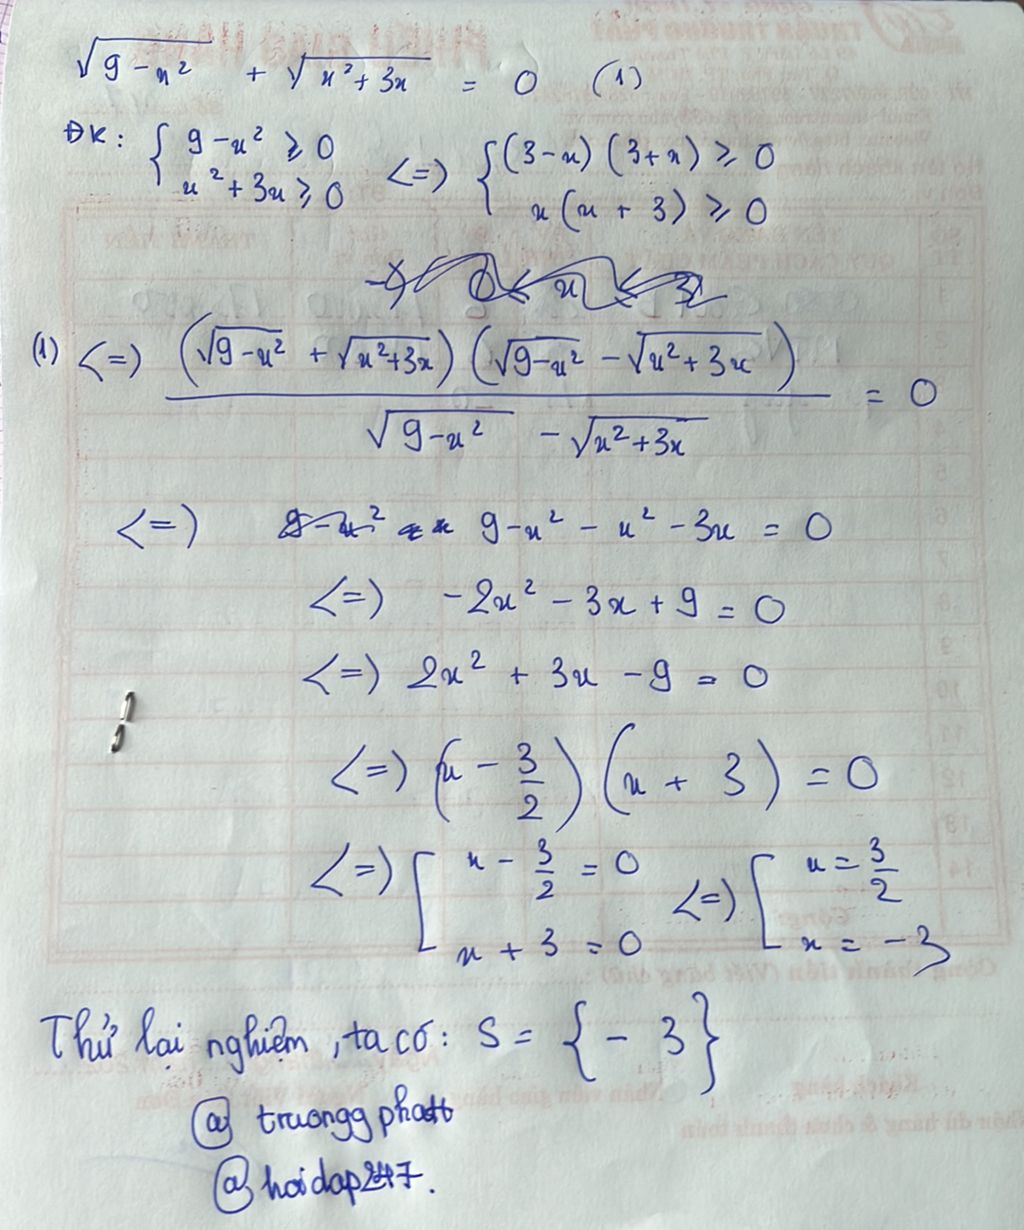 √(9-x²) + √(x²+3x) = 0 (1)
ĐK: { 9-x² ≥ 0 <=> { (3-x)(3+x) ≥ 0
x²+3x ≥ 0 x(x+3) ≥ 0
(1) <=> (√(9-x²) + √(x²+3x)) (√(9-x²) - √(x²+3x)) / (√(9-x²) - √(x²+3x)) = 0
<=> 9-x² - x² - 3x = 0
<=> -2x² - 3x + 9 = 0
<=> 2x² + 3x - 9 = 0
<=> (x - 3/2) (x + 3) = 0
<=> [ x - 3/2 = 0 <=> [ x = 3/2
x + 3 = 0 x = -3
Thử lại nghiệm, ta có: S = {-3}
@ truongg phatt
@ hoidap247.